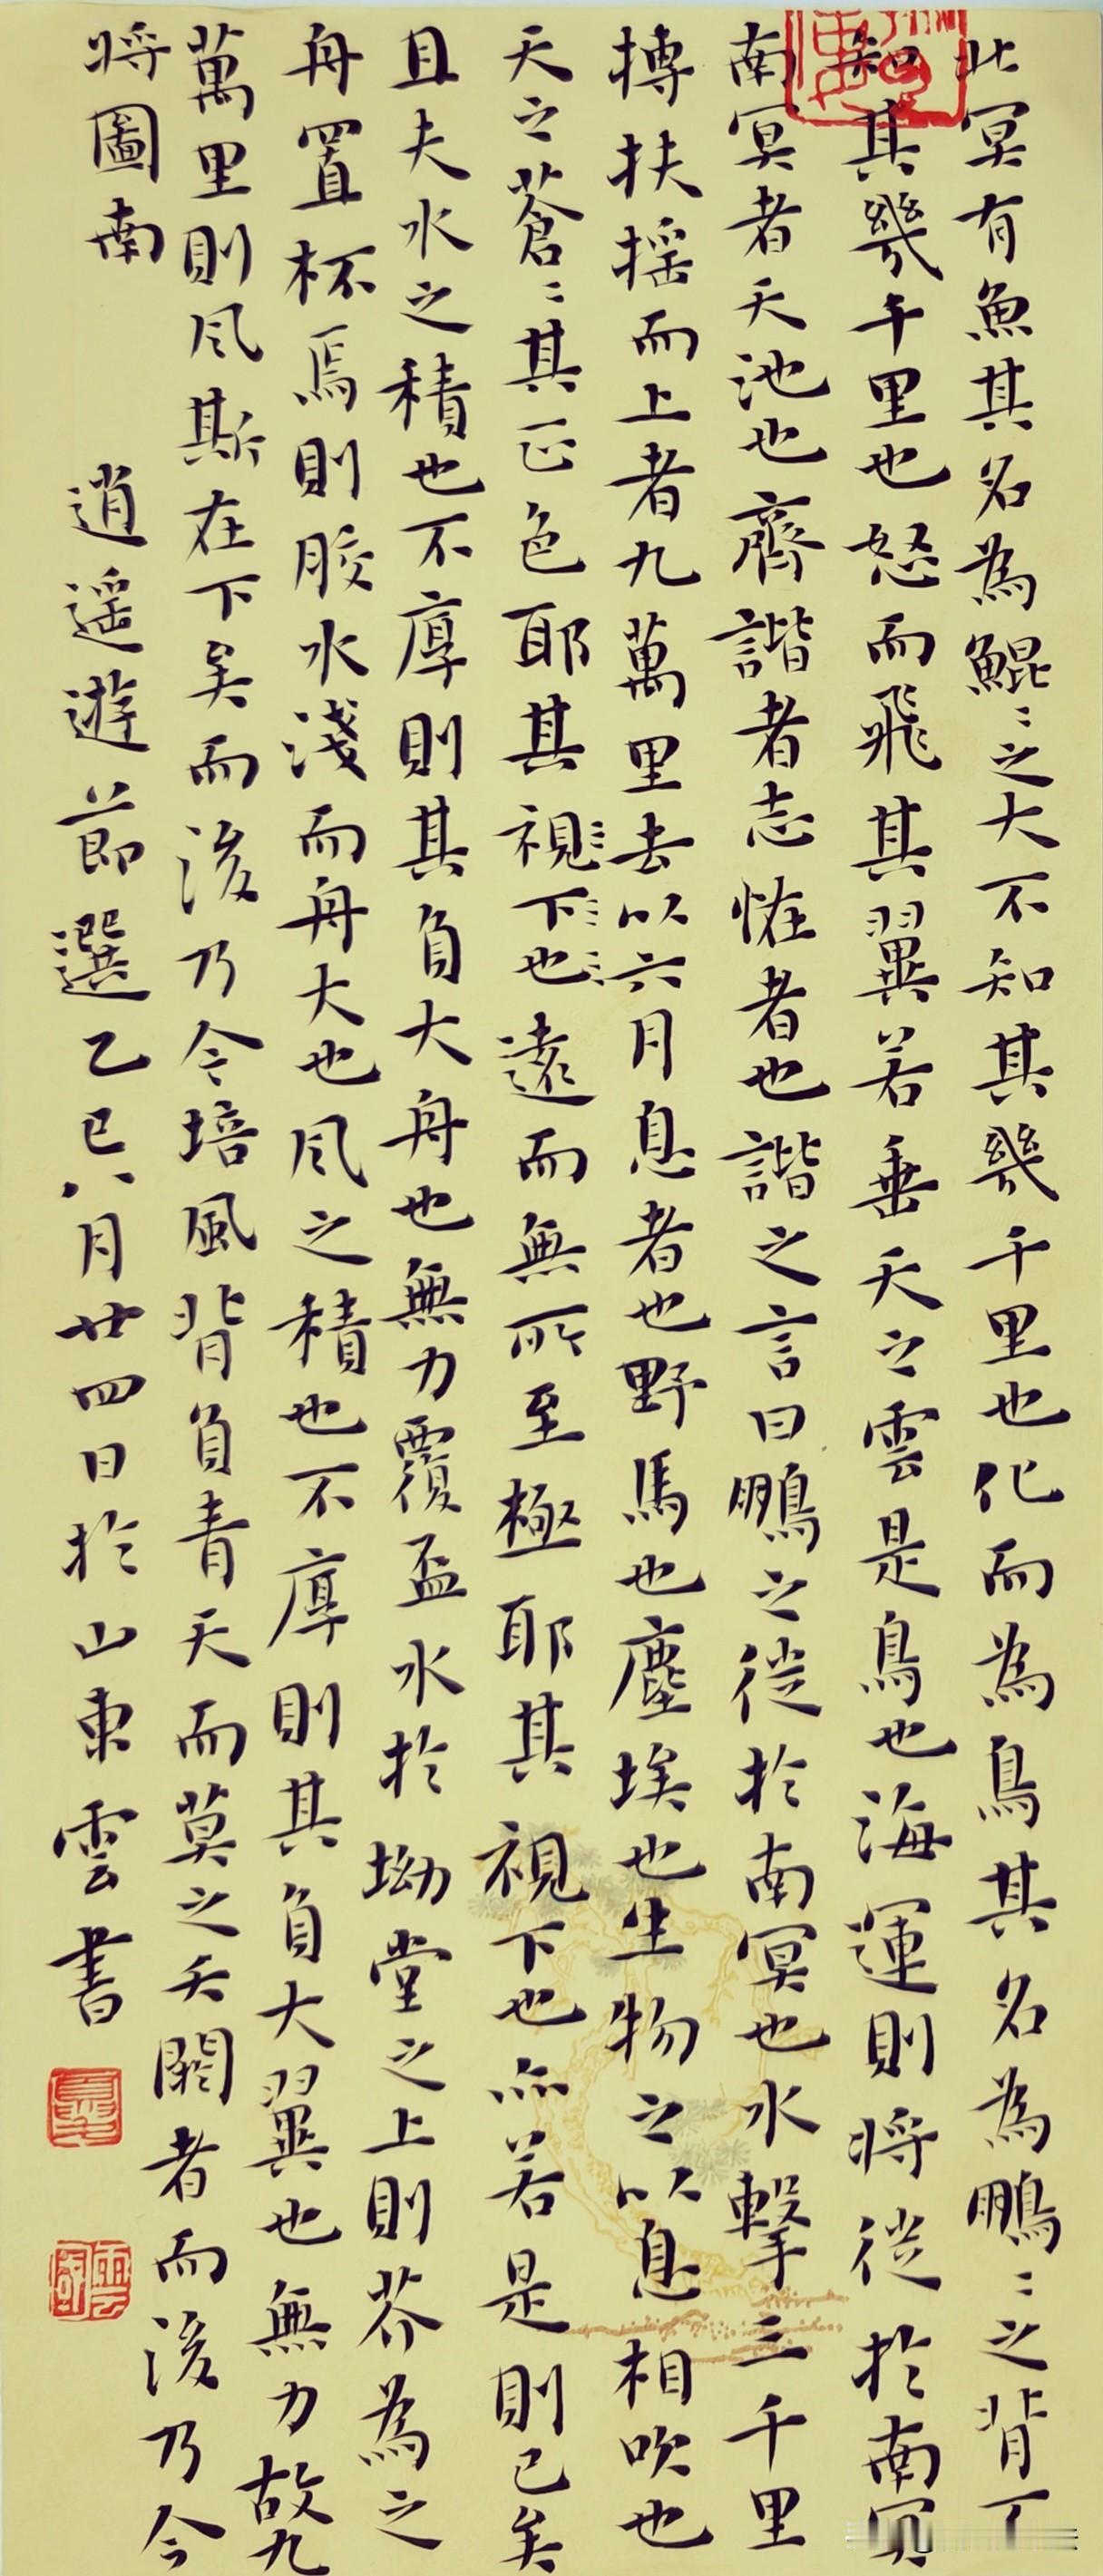 北冥有魚其名為鯤〻之大不知其幾千里也化而為鳥其名為鵬〻之背丁
知其幾千里也怒而飛其翼若垂天之雲是鳥也海運則將徙於南冥
南冥者天池也齊諧者志恠者也諧之言曰鵬之徙於南冥也水擊三千里
摶扶揺而上者九萬里去以六月息者也野馬也塵埃也生物之以息相吹也
天之蒼〻其正色耶其視下也遠而無所至極耶其視下也亦若是則已矣
且夫水之積也不厚則其負大舟也無力覆盃水於坳堂之上則芥為之
舟置杯焉則膠水淺而舟大也风之積也不厚則其負大翼也無力故九
萬里則风斯在下矣而後乃今培風背負青天而莫之夭閼者而後乃今
將圖南
逍遥遊節選乙巳八月廿四日於山東雲書